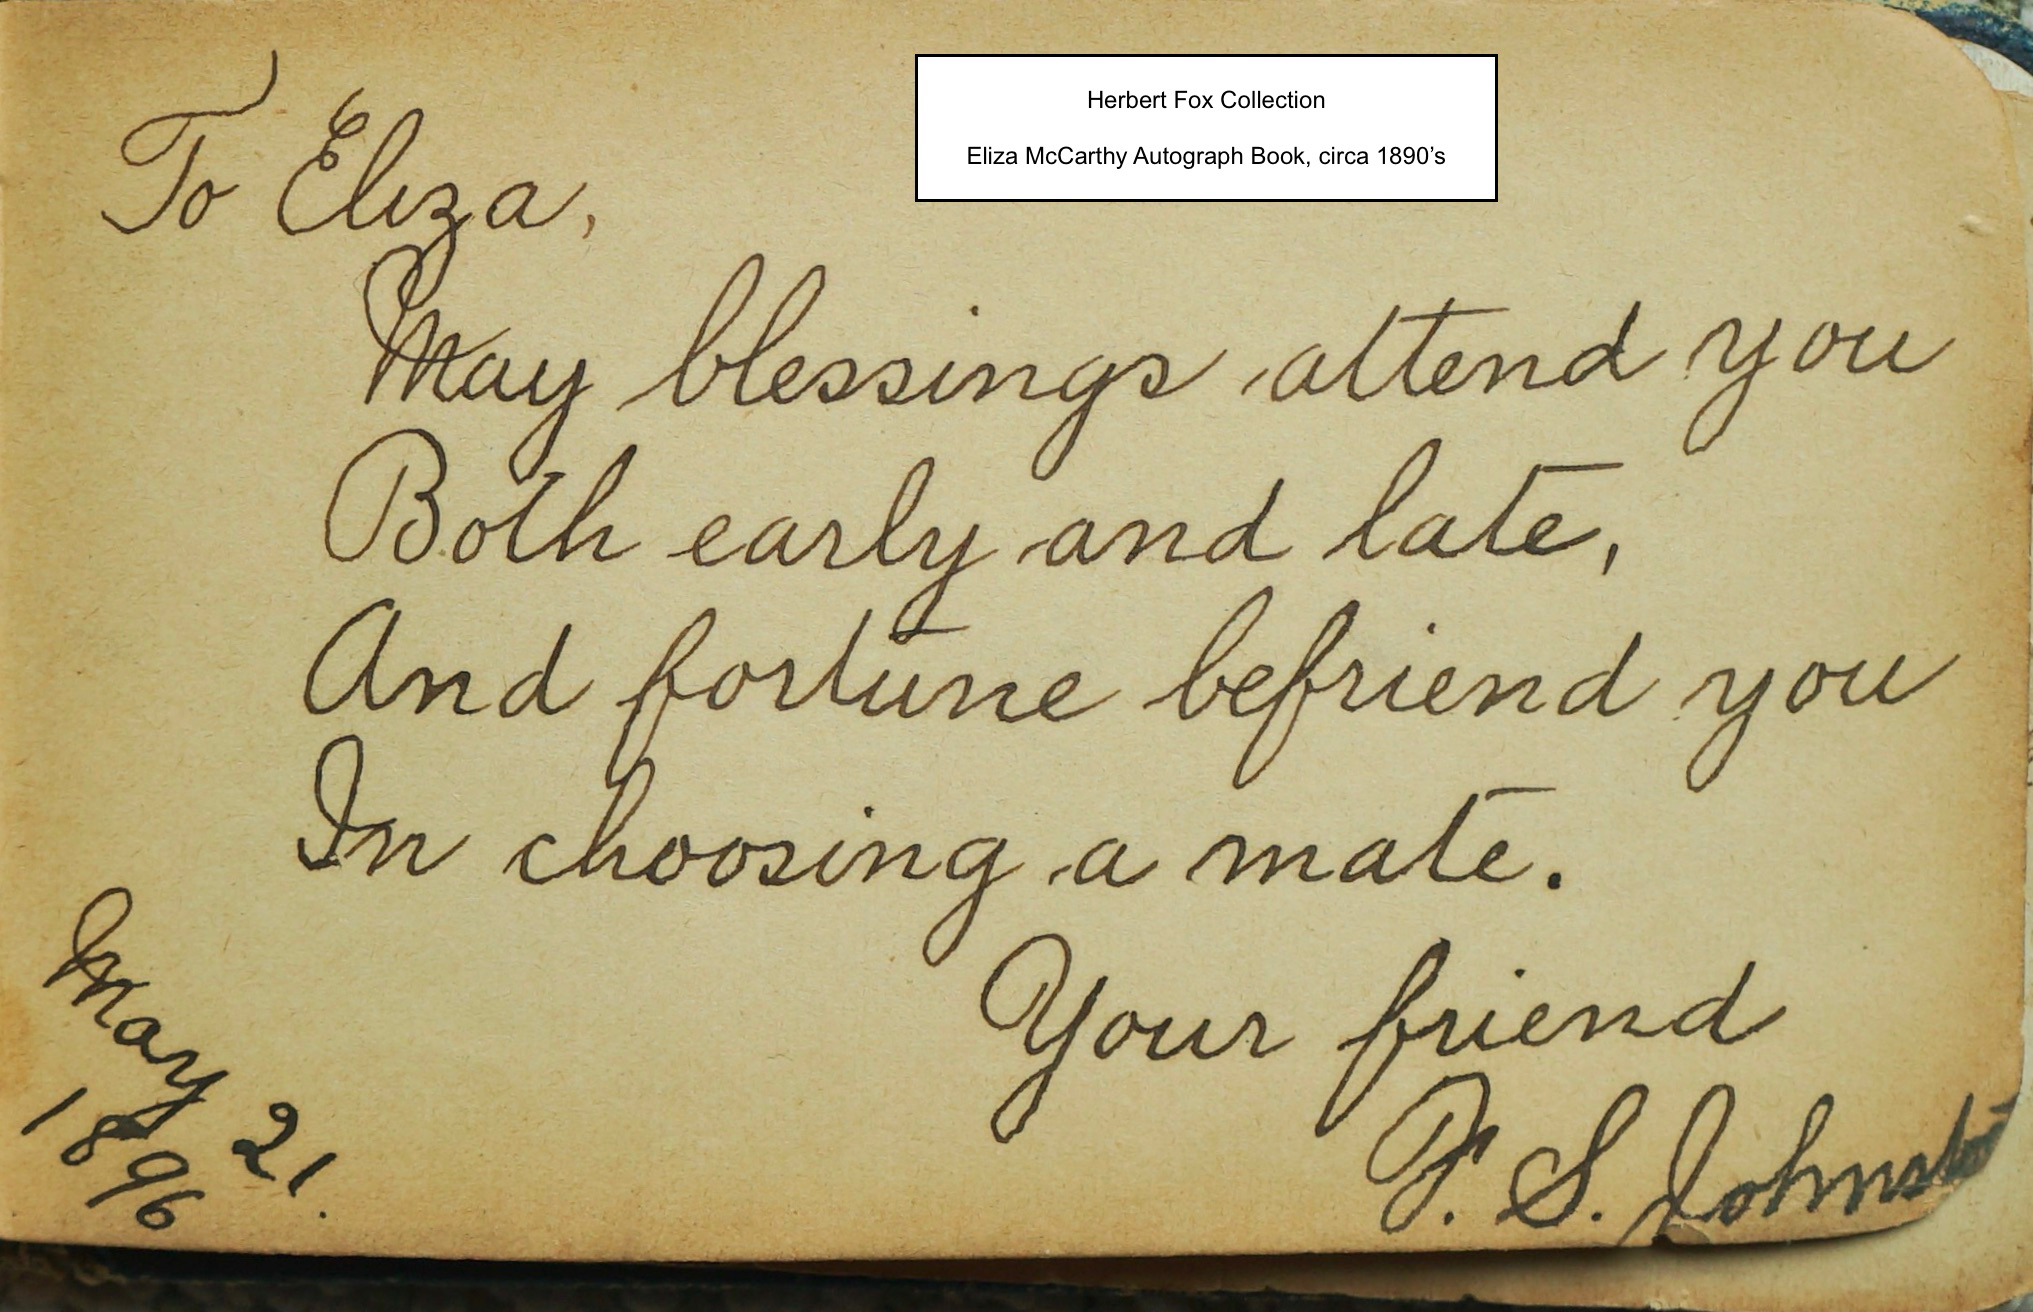 Herbert Fox Collection
Eliza McCarthy Autograph Book, circa 1890’s
To Eliza,
May blessings attend you
Both early and late,
And fortune befriend you
In choosing a mate.
Your friend
S.
May 21.
1896